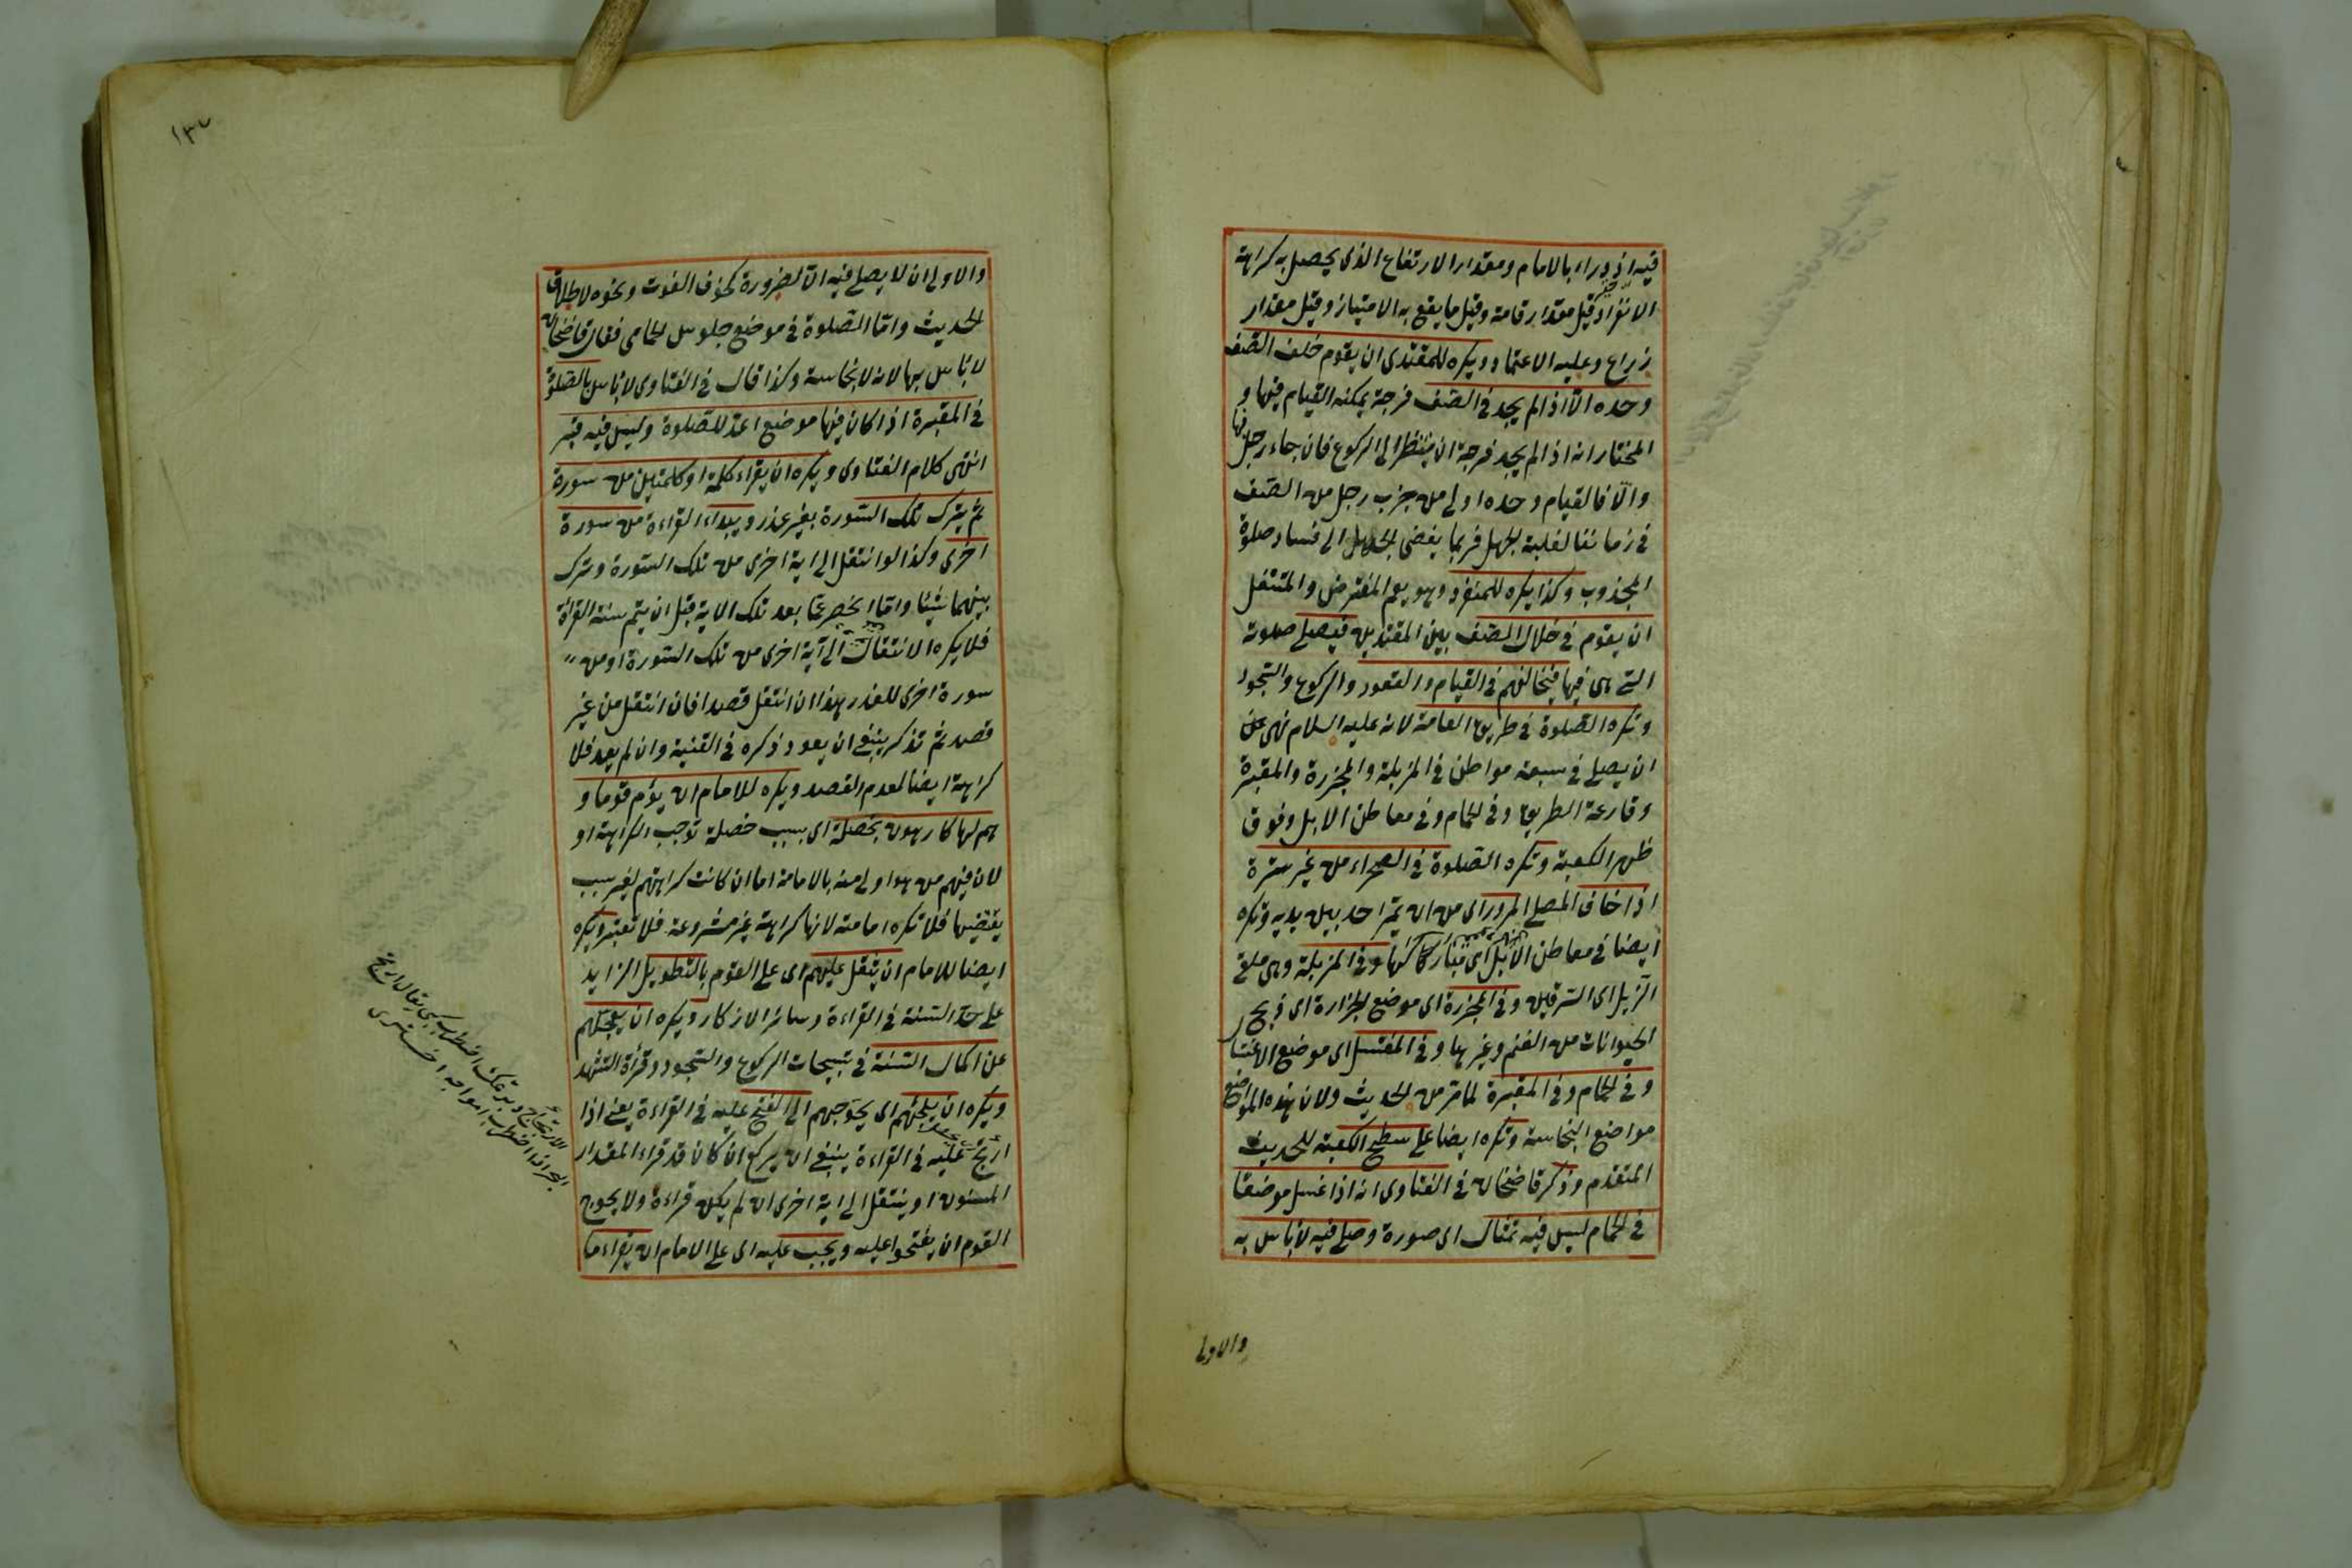 فيه ازدراء بالامام ومقدار الارتفاع الذى يحصل به كراهة
الانفراد قيل مقدار قامة وقيل ما يقع به الامتياز وقيل مقدار
زراع وعليه الاعتماد ويكره للمقتدى ان يقوم خلف الصف
وحده الا اذا لم يجد فى الصف فرجة يمكنه القيام فيها و
المختار انه اذا لم يجد فرجة ان ينتظر الى الركوع فان جاء رجل فبها
والا فالقيام وحده اولى من جزب رجل من الصف
فى زماننا لغلبة الجهل فربما يفضى الجهل الى فساد صلوة
المجذوب وكذا يكره للمنفرد وهو يعم المفترض والمتنفل
ان يقوم فى خلال الصف بين المقتدين فيصلى صلوته
التى هى فيها فيخالفهم فى القيام والقعود والركوع والسجود
وتكره الصلوة فى طريق العامة لانه عليه السلام نهى عن
ان يصلى فى سبعة مواطن فى المزبلة والمجزرة والمقبرة
وقارعة الطريق وفى الحمام وفى معاطن الابل وفوق
ظهر الكعبة وتكره الصلوة فى الصحراء من غير سترة
اذا خاف المصلى المرور اى من ان يمر احد بين يديه وتكره
ايضا فى معاطن الابل اى مباركها وفى المزبلة وهى ملقى
الزبل اى السرقين وفى المجزرة اى موضع الجزارة اى ذبح
الحيوانات من الغنم وغيرها وفى المغتسل اى موضع الاغتسال
وفى الحمام وفى المقبرة لما مر من الحديث ولان هذه المواضع
مواضع النجاسة وتكره ايضا على سطح الكعبة للحديث
المتقدم وذكر قاضخان فى الفتاوى انه اذا غسل موضعا
فى الحمام ليس فيه تمثال اى صورة وصلى فيه لا باس به
والاولى
١٣٧
والاولى ان لا يصلى فيه الا لضرورة كخوف الفوت ونحوه لاطلاق
الحديث واما الصلوة فى موضع جلوس الحمامى فقال قاضخان
لا باس بها لانه لا نجاسة وكذا قال فى الفتاوى لا باس بالصلوة
فى المقبرة اذا كان فيها موضع اعد للصلوة وليس فيه قبر
انتهى كلام الفتاوى ويكره ان يقراء كلمة او كلمتين من سورة
ثم يترك تلك السورة بغير عذر ويبداء القراءة من سورة
اخرى وكذا لو انتقل الى اية اخرى من تلك السورة وترك
بينهما شيئا واما اذا حصر عما بعد تلك الاية قبل ان يتم سنة القراة
فلا يكره الانتقال الى آية اخرى من تلك السورة او من
سورة اخرى للعذر هذا ان انتقل قصدا فان انتقل من غير
قصد ثم تذكر ينبغى ان يعود ذكره فى القنية وان لم يعد فلا
كراهة ايضا لعدم القصد ويكره للامام ان يؤم قوما و
هم لها كارهون بخصلة اى بسبب خصلة توجب الكراهة او
لان فيهم من هو اولى منه بالامامة اما ان كانت كراهتهم لغير سبب
يقتضيها فلا تكره امامته لانها كراهة غير مشروعة فلا تعتبر ويكره
ايضا للامام ان يثقل عليهم اى على القوم بالتطويل الزايد
على حد السنة فى القراءة وسائر الازكار ويكره ان يعجلهم
عن اكمال السنة فى تسبيحات الركوع والسجود وقرأة التشهد
ويكره ان يلجئهم اى يحوجهم الى الفتح عليه فى القراءة يعنى اذا
ارتج عليه فى القراءة ينبغى ان يركع ان كان قد قراء المقدار
المسنون او ينتقل الى اية اخرى ان لم يكن قراءة ولا يحوج
القوم ان يفتحوا عليه ويجب عليه اى على الامام ان يقراء ما
البحر اذا اضطرب امواجه اخترى